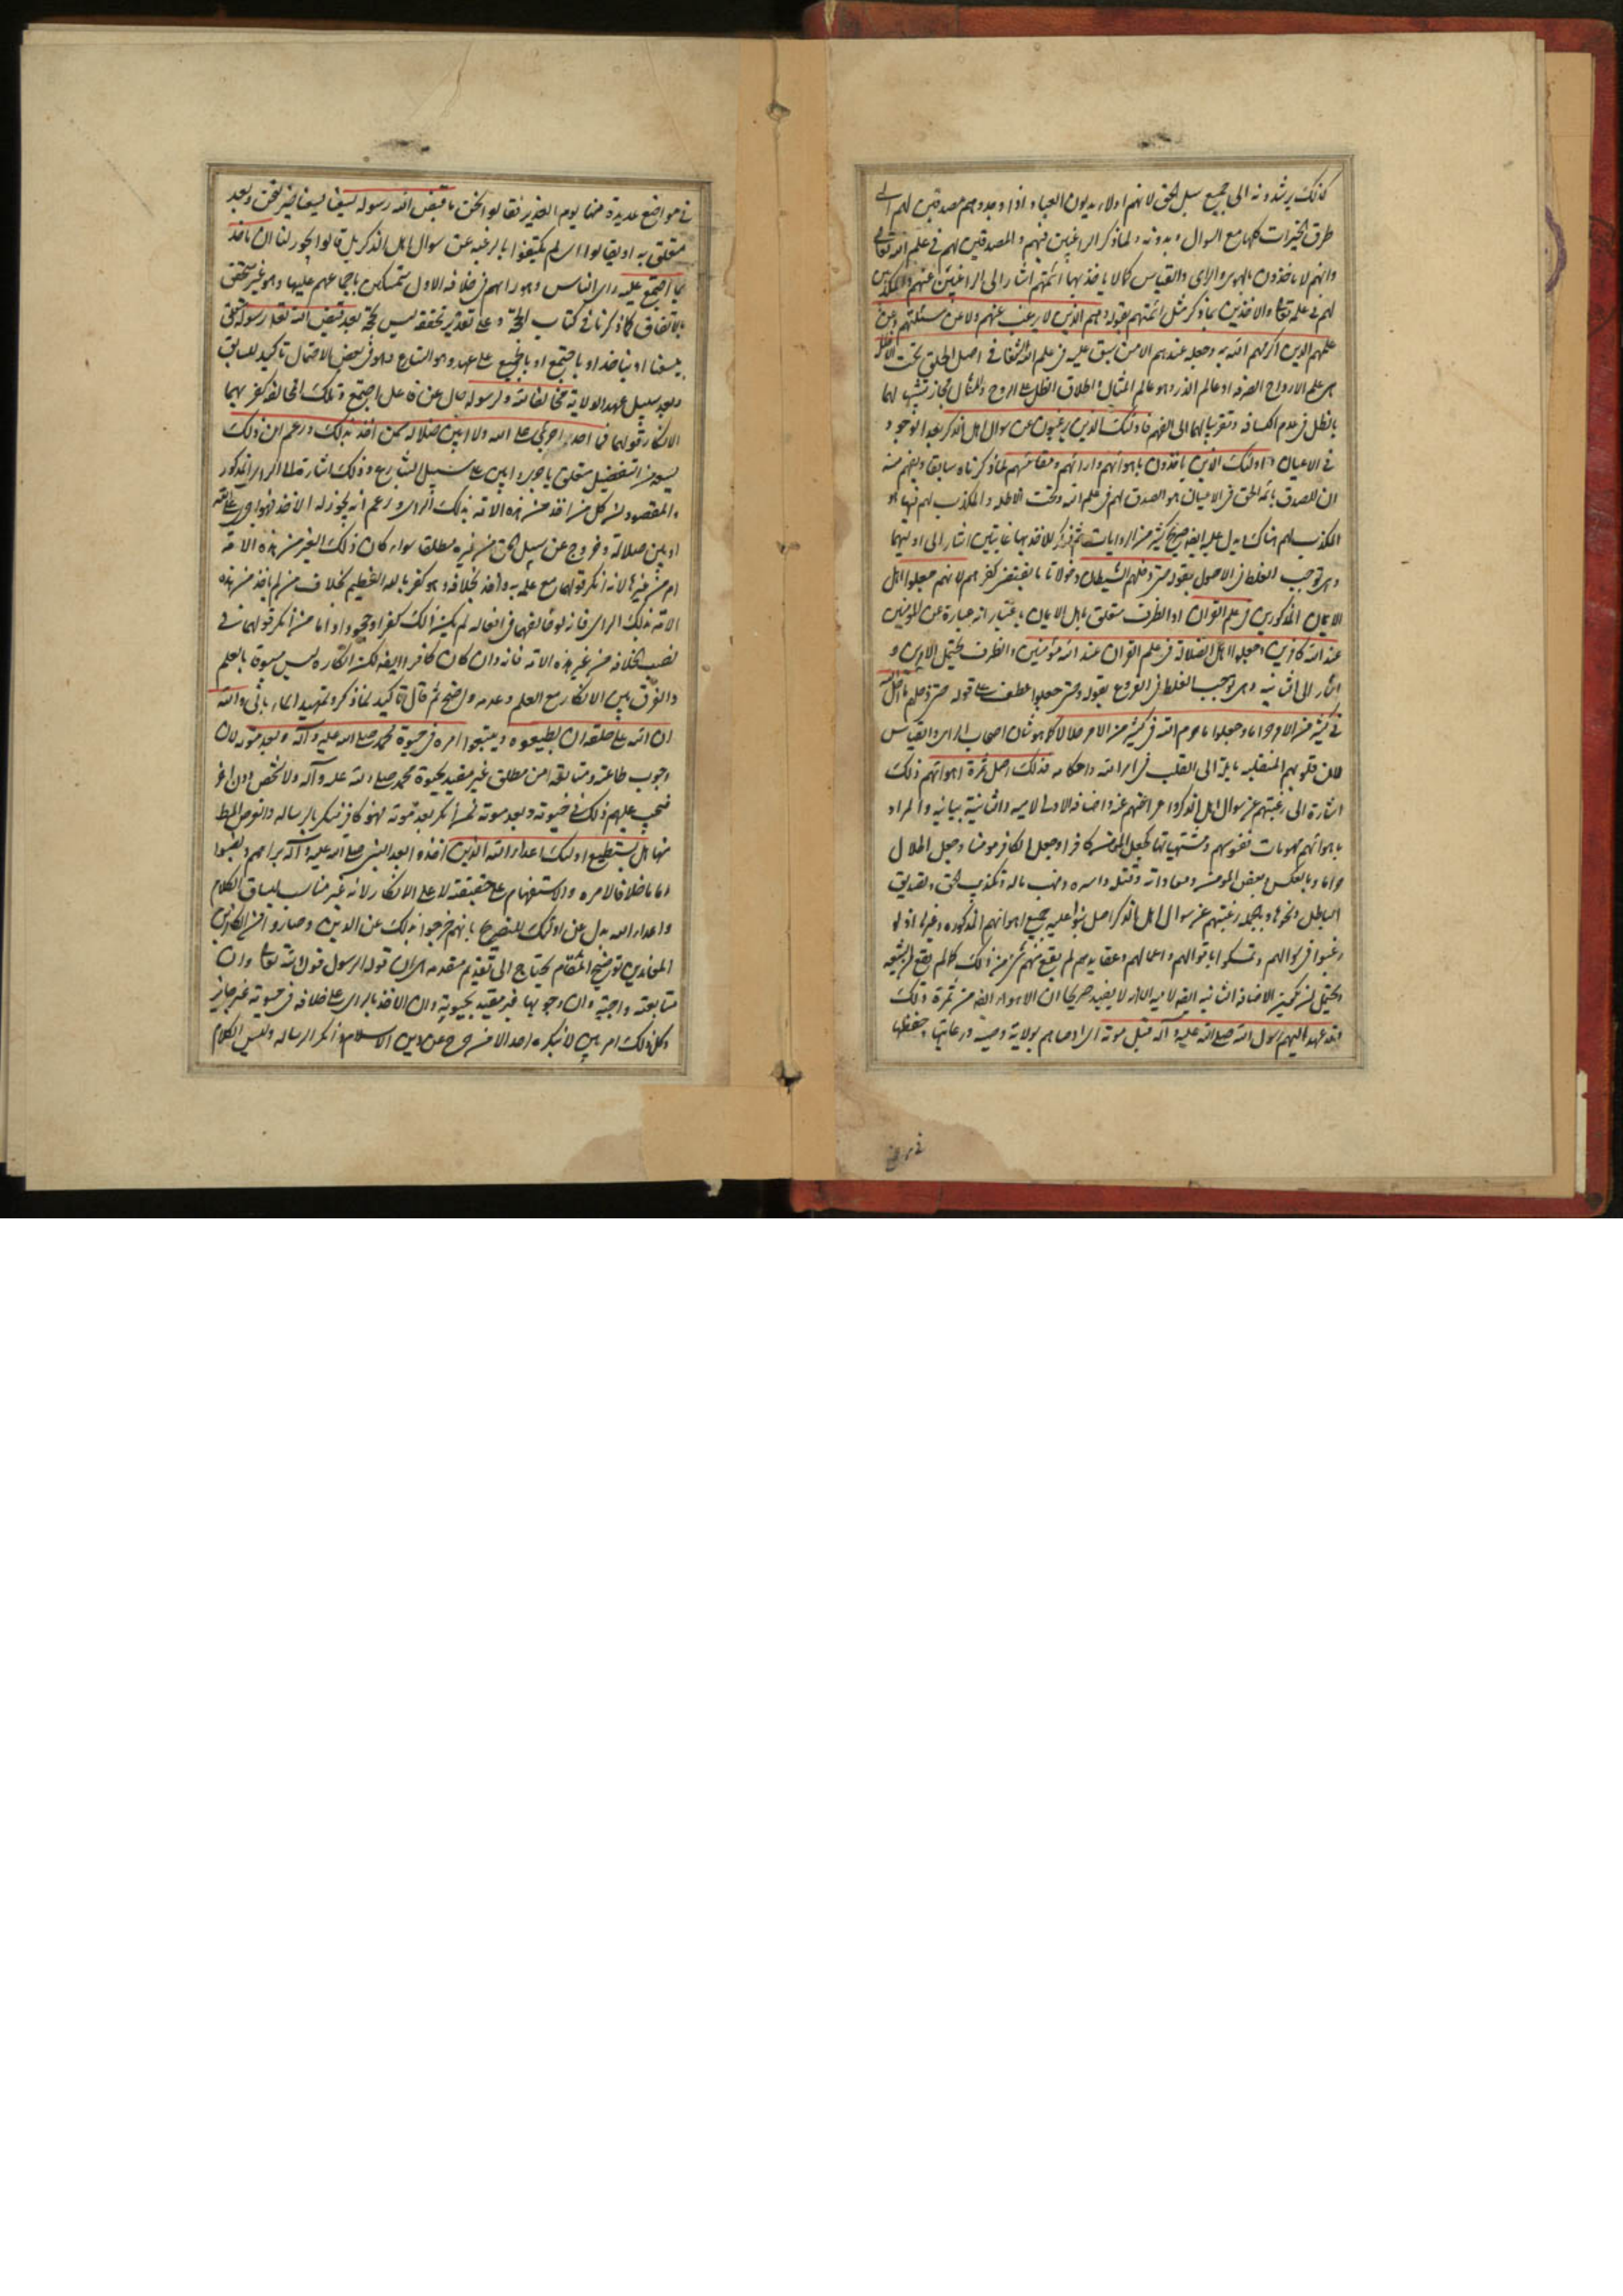 كذلك يرشدونه الى جميع سبل الحق لانهم اولاء يدلون العباد اذا وجدوهم مصدقين لهم الى
طرق الخيرات كلها مع السوال وبدونه ولما ذكر الراغبين فيهم والمصدقين لهم في علم الله تعالى
وانهم لا ياخذون بالهوى والراى والقياس كما لا ياخذ بها ائمتهم اشار الى الراغبين عنهم والمكذبين
لهم في علمه تعالى والاخذين بما ذكر مثل ائمتهم بقوله وهم الذين لا يرغب عنهم ولا عن مسئلتهم وعن
علمهم الذين اكرمهم الله به وجعله عندهم الا من سبق عليه في علم الله الشقا في اصل الخلق تحت الاظلة
هي علم الارواح الصرفه او عالم الذر وهو عالم المثال واطلاق الظل على الروح والمثال مجاز تشبيها لهما
بالظل في عدم الكثافه وتقريبا لهما الى الفهم فاولئك الذين يرغبون عن سوال اهل الذكر بعد الوجود
في الاعيان واولئك الذين ياخذون باهوائهم وارائهم ومقائسهم لما ذكرناه سابقا ويفهم منه
ان المصدق بائمه الحق في الاعيان هو المصدق لهم في علم الله وتحت الاظله والمكذب لهم فيها هو
المكذب لهم هناك يدل عليه ايضا صريح كثير من الروايات ثم ذكر للاخذ بها غايتين اشار الى اوليهما
وهى توجب الغلط في الاصول بقوله حتى دخلهم الشيطان دخولا تاما يقتضى كفرهم لانهم جعلوا اهل
الايمان المذكورين في علم القران او الظرف متعلق باهل الايمان باعتبار انه عبارة عن المومنين
عند الله كافرين وجعلوا اهل الضلالة في علم القران عند الله مؤمنين والظرف يحتمل الامرين و
اشار الى الثانيه وهى توجب الغلط في الفروع بقوله وحتى جعلوا عطف على قوله حتى دخلهم ما احل الله
في كثير من الامر حراما وجعلوا ما حرم الله في كثير من الامر حلالا كما هو شان اصحاب الراى والقياس
فان قلوبهم المنقلبه مايلة الى القلب في امر الله واحكامه فذلك اصل ثمرة اهوائهم ذلك
اشارة الى رغبتهم عن سوال اهل الذكر واعراضهم عنه واضافه الاولى لاميه والثانية بيانيه والمراد
باهوائهم مهويات نفوسهم ومشتهياتها كجعل المؤمن كافرا وجعل الكافر مومنا وجعل الحلال
حراما وبالعكس وبغض المومن ومعاداته وقتله واسره ونهب ماله وتكذيب الحق وتصديق
الباطل ونحوها وبالجمله رغبتهم عن سوال اهل الذكر اصل بنوا عليه جميع اهوائهم المذكوره وغيرها اذ لو
رغبوا في سوالهم وتمسكوا باقوالهم واعمالهم وعقايدهم لم يقع منهم شئ من ذلك كما لم يقع من الشيعه
ويحتمل ان يكون الاضافه الثانيه ايضا لاميه الا انه لا يفيد صريحا ان الاهواء ايضا من ثمرة ذلك
وقد عهد اليهم رسول الله صلى الله عليه وآله قبل موته اى اوصاهم بولاية وصيه ورعايتها وحفظها
في مواضع
في مواضع عديدة منها يوم الغدير فقالوا نحن بعد ما قبض الله رسوله يسعنا
متعلق به او بقالوا اى لم يكتفوا بالرغبه عن سوال اهل الذكر بل قالوا يجوز لنا ان ناخذ
بما اجتمع عليه راى الناس وهو رايهم في خلافه الاول متمسكين باجماعهم عليها وهو غير متحقق
بالاتفاق كما ذكرنا في كتاب الحجة وعلى تقدير تحققه ليس بحجة بعد قبض الله تعالى رسوله متعلق
بيسعنا او بناخذ او باجتمع او بالجميع على عهده وهو الشارع وهو في بعض الاحتمال تاكيد للسابق
وبعد سبيل عهد الولاية مخالفا لله ولرسوله حال عن فاعل اجتمع وتلك المخالفه كفر بهما
لانكار قولهما فما احد اجرى على الله ولا ابين ضلالة ممن اخذ بذلك وزعم ان ذلك
يسعه من التفضيل متعلق باجرى وابين على سبيل التنازع وذلك اشارة الى الراى المذكور
والمقصود ان كل من اخذ من هذه الامة بذلك الراى وزعم انه يجوز له الاخذ فهو اجرى على الله
او ابين ضلالة وخروج عن سبيل الحق من غيره مطلقا سواء كان ذلك الغير من هذه الامة
ام من غيرها لانه انكر قولهما مع علمه به واخذ بخلافه وهو كفر بالله العظيم بخلاف من لم ياخذ من هذه
الامة بذلك الراى فانه لو خالفهما في افعاله لم يكن ذلك كفرا وجحودا واما من انكر قولهما في
نصب الخلافه من غير هذه الامة فانه وان كان كافرا ايضا لكن انكاره ليس مسبوقا بالعلم
والفرق بين الانكار مع العلم وعدمه واضح ثم قال تاكيد لما ذكر وتمهيدا لما ياتى والله
ان لله على خلقه ان يطيعوه ويتبعوا امره في حيوة محمد صلى الله عليه وآله وبعد موته لان
وجوب طاعته ومتابعة امره مطلق غير مقيد بحيوة محمد صلى الله عليه وآله ولا شخص دون اخر
فيجب عليهم ذلك في حيوته وبعد موته فمن انكر بعد موته فهو كافر منكر بالرساله والغرض المط
منها هل يستطيع اولئك اعداء الله الذين اخذوا بعد النبى صلى الله عليه وآله برايهم ونصبوا
اماما خلافا لامره والاستفهام على حقيقته لا على الانكار لانه غير مناسب لسياق الكلام
واعداء الله بدل عن اولئك للتصريح بانهم خرجوا بذلك عن الدين وصاروا من الكافرين
المعاندين توضيح المقام يحتاج الى تقديم مقدمه هى ان قول الرسول قول الله تعالى وان
متابعته واجبة وان وجوبها غير مقيد بحيوته وان الاخذ بالراى على خلافه في حيوته غير جايز
وكل ذلك امر بين لا ينكره احد الا من خرج عن دين الاسلام وانكر الرساله وليس الكلام